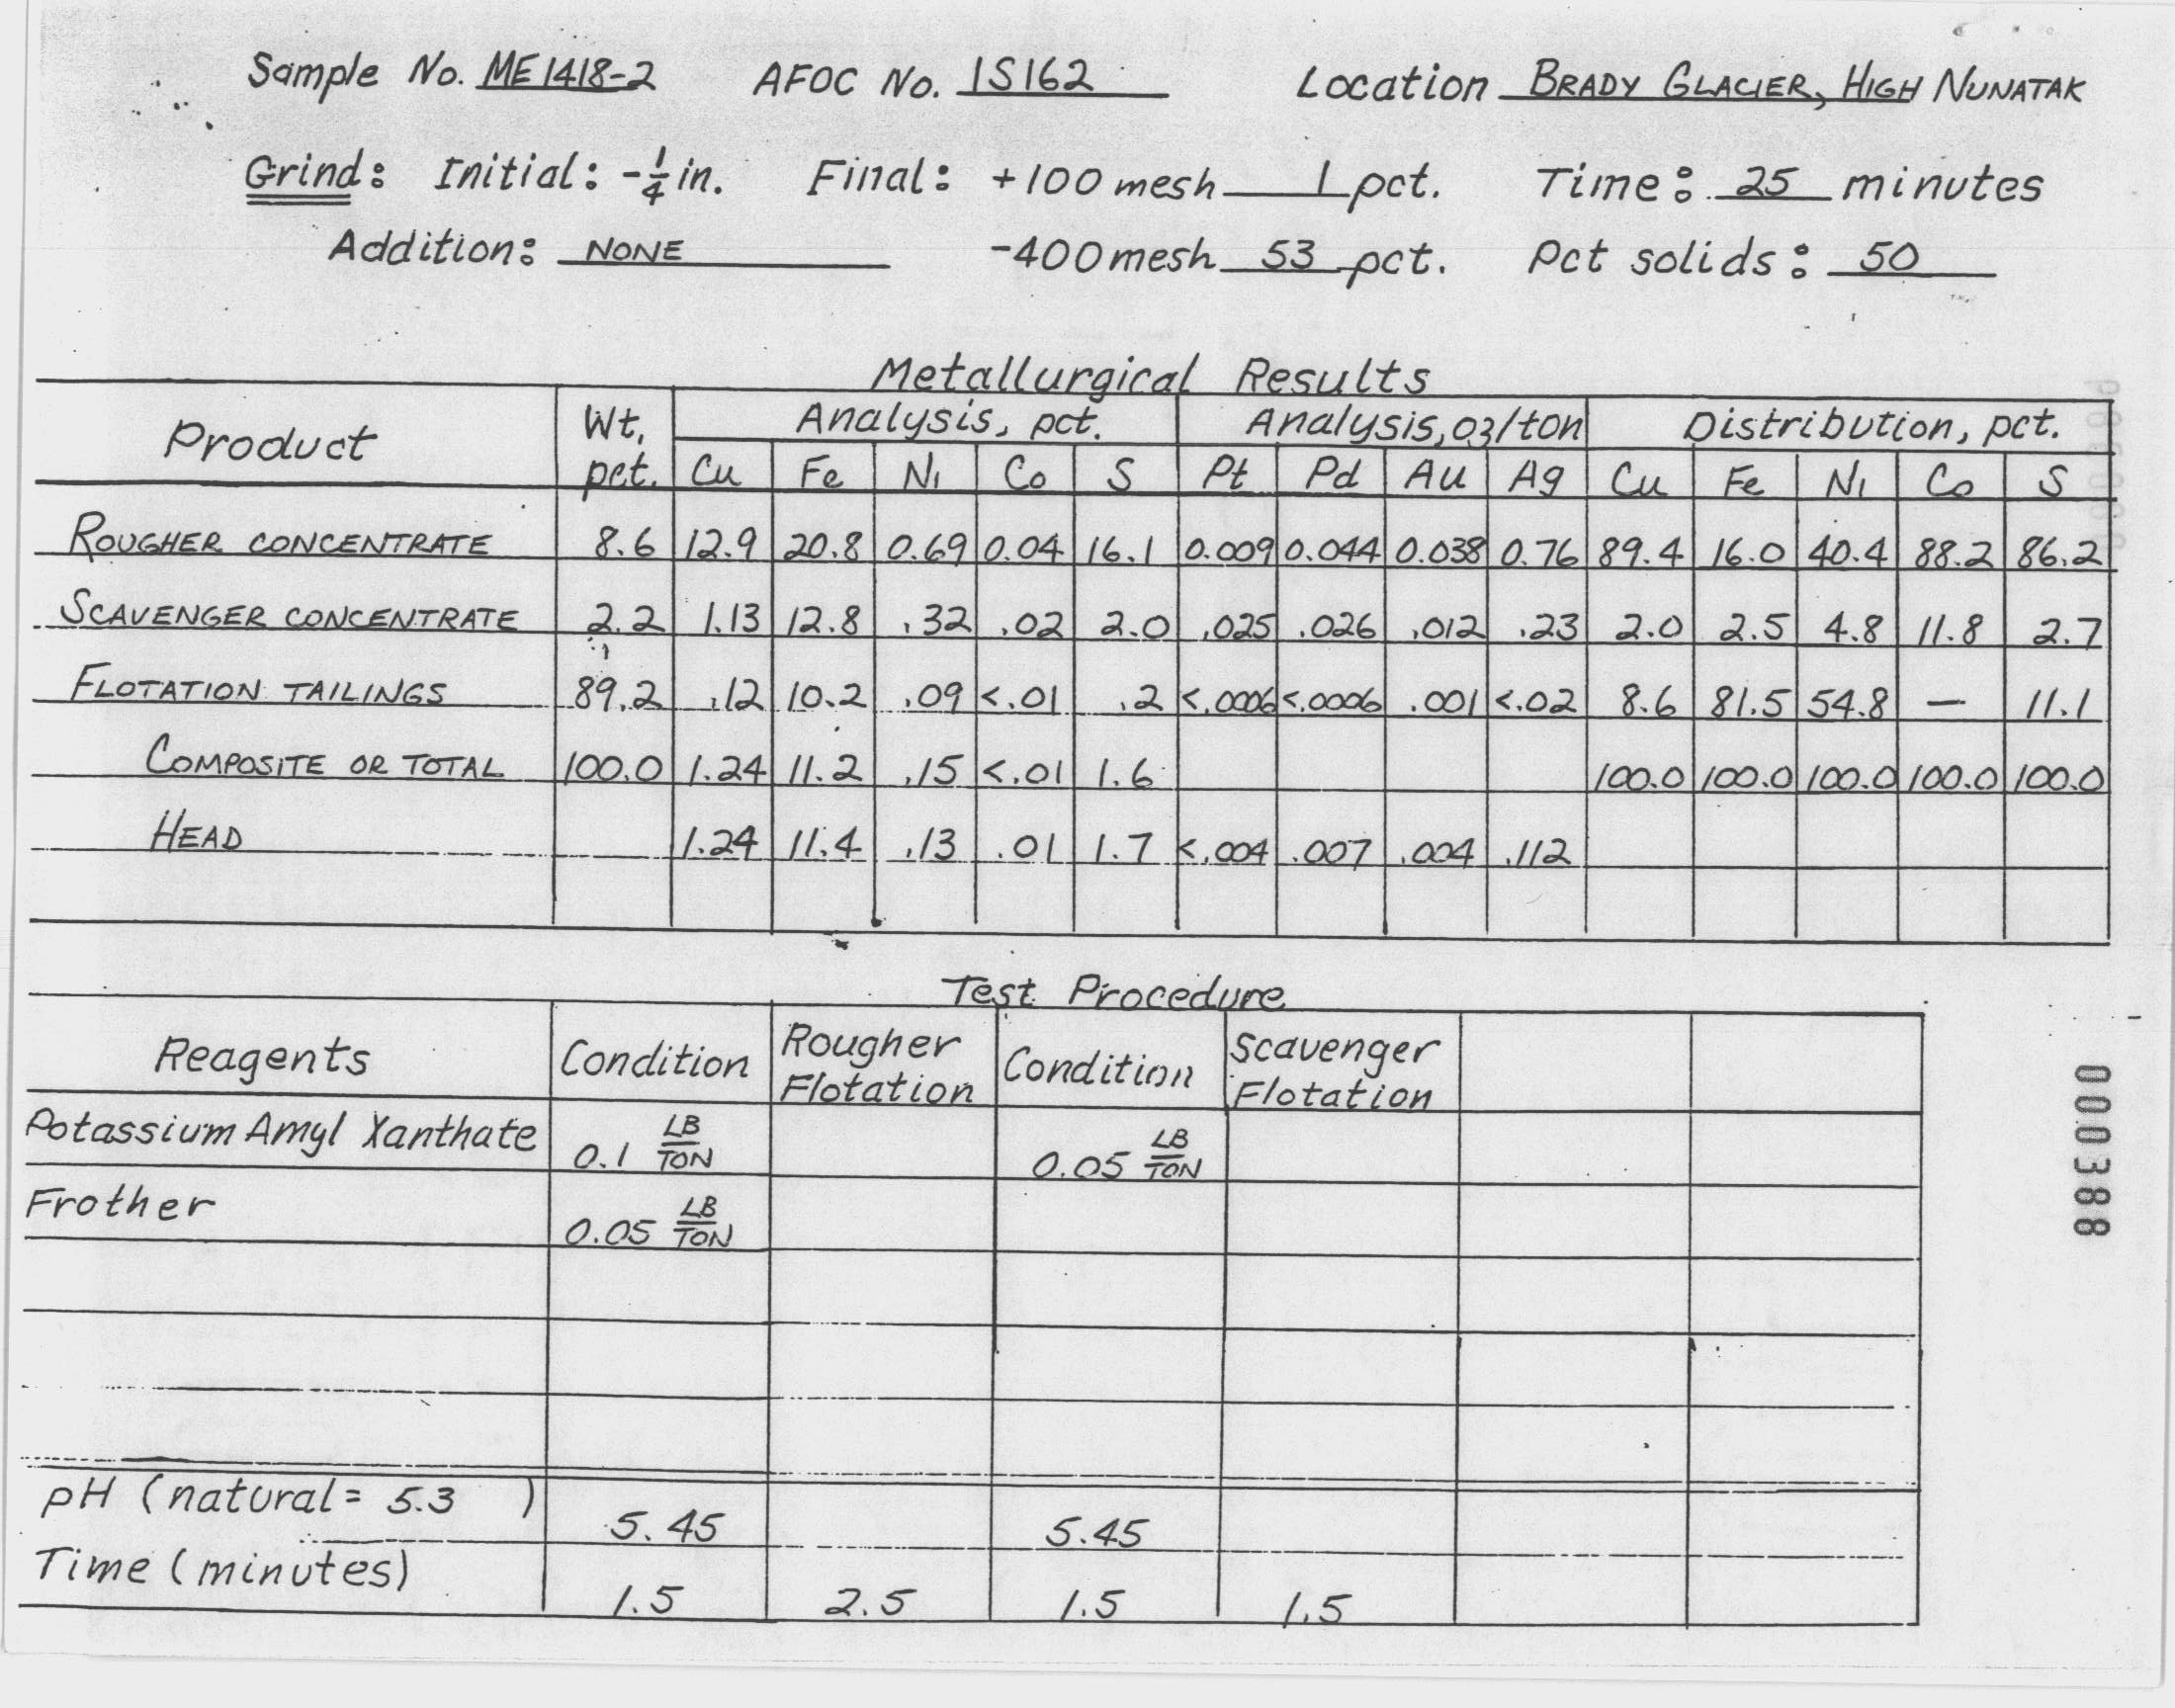 Sample No. ME1418-2 AFOC No. 1S162 Location BRADY GLACIER, HIGH NUNATAK
Grind: Initial: -1/4 in. Final: +100 mesh 1 pct. Time: 25 minutes
Addition: NONE -400 mesh 53 pct. Pct solids: 50
Metallurgical Results
Product Wt. pct. Analysis, pct. Analysis, oz/ton Distribution, pct.
Cu Fe Ni Co S Pt Pd Au Ag Cu Fe Ni Co S
ROUGHER CONCENTRATE 8.6 12.9 20.8 0.69 0.04 16.1 0.009 0.044 0.038 0.76 89.4 16.0 40.4 88.2 86.2
SCAVENGER CONCENTRATE 2.2 1.13 12.8 .32 .02 2.0 .025 .026 .012 .23 2.0 2.5 4.8 11.8 2.7
FLOTATION TAILINGS 89.2 .12 10.2 .09 <.01 .2 <.0006 <.0006 .001 <.02 8.6 81.5 54.8 — 11.1
COMPOSITE OR TOTAL 100.0 1.24 11.2 .15 <.01 1.6 100.0 100.0 100.0 100.0 100.0
HEAD 1.24 11.4 .13 .01 1.7 <.004 .007 .004 .112
Test Procedure
Reagents Condition Rougher Flotation Condition Scavenger Flotation
Potassium Amyl Xanthate 0.1 LB/TON 0.05 LB/TON
Frother 0.05 LB/TON
pH (natural = 5.3 ) 5.45 5.45
Time (minutes) 1.5 2.5 1.5 1.5
000388